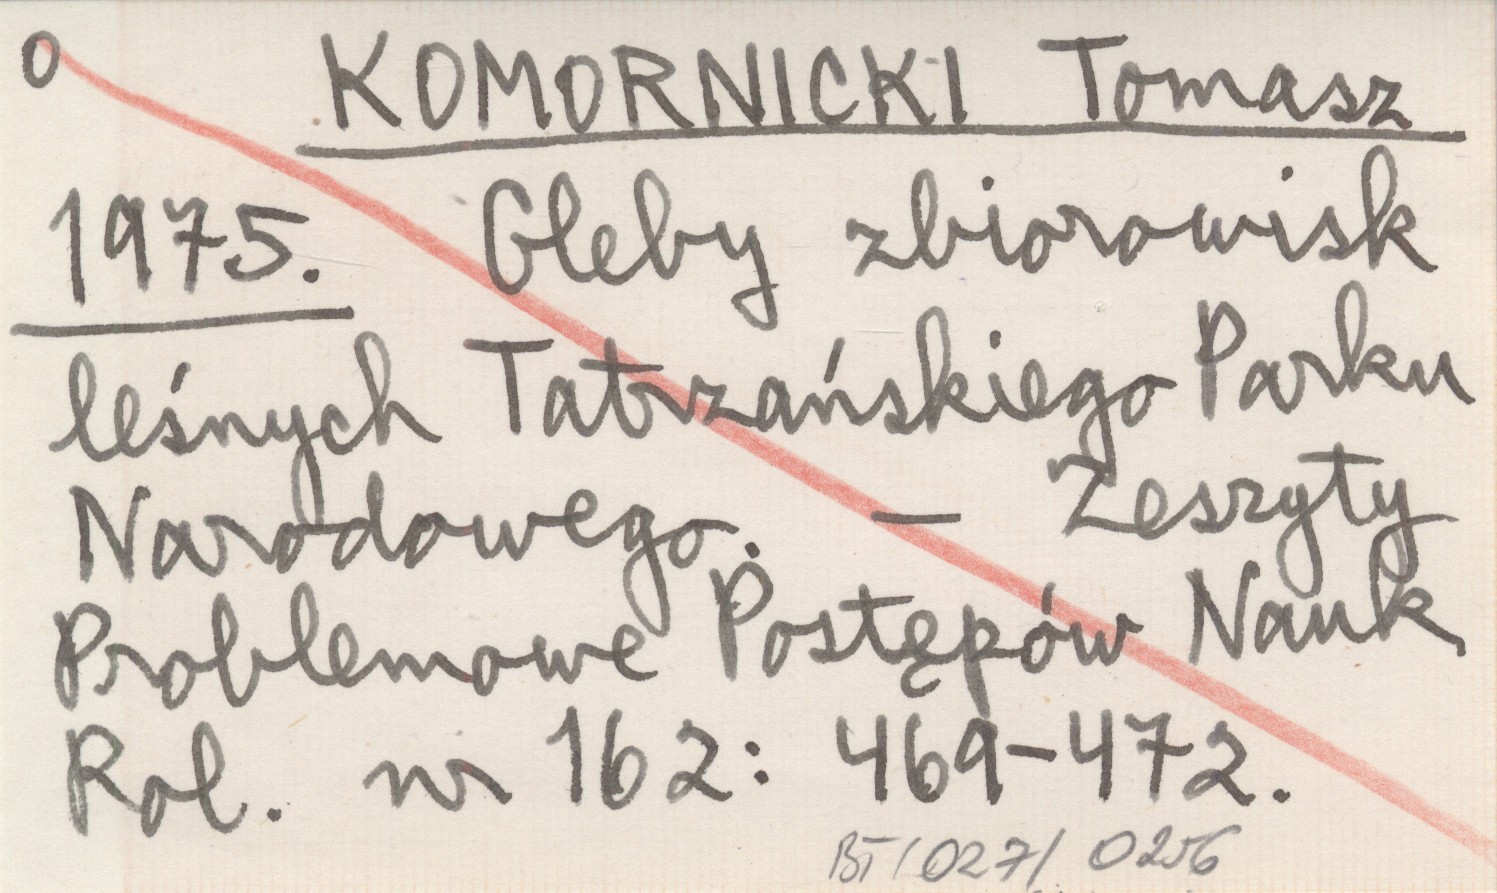 O KOMORNICKI Tomasz
1975. Gleby zbiorowisk
leśnych Tatrzańskiego Parku
Narodowego. — Zeszyty
Problemowe Postępów Nauk
Rol. nr 162: 469-472.
BT/027/ 0256